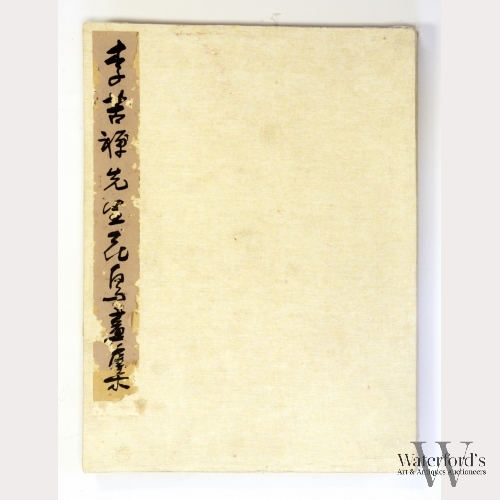 李苦禅先生花鳥畫集
W
Waterford's
Art & Antiques Auctioneers